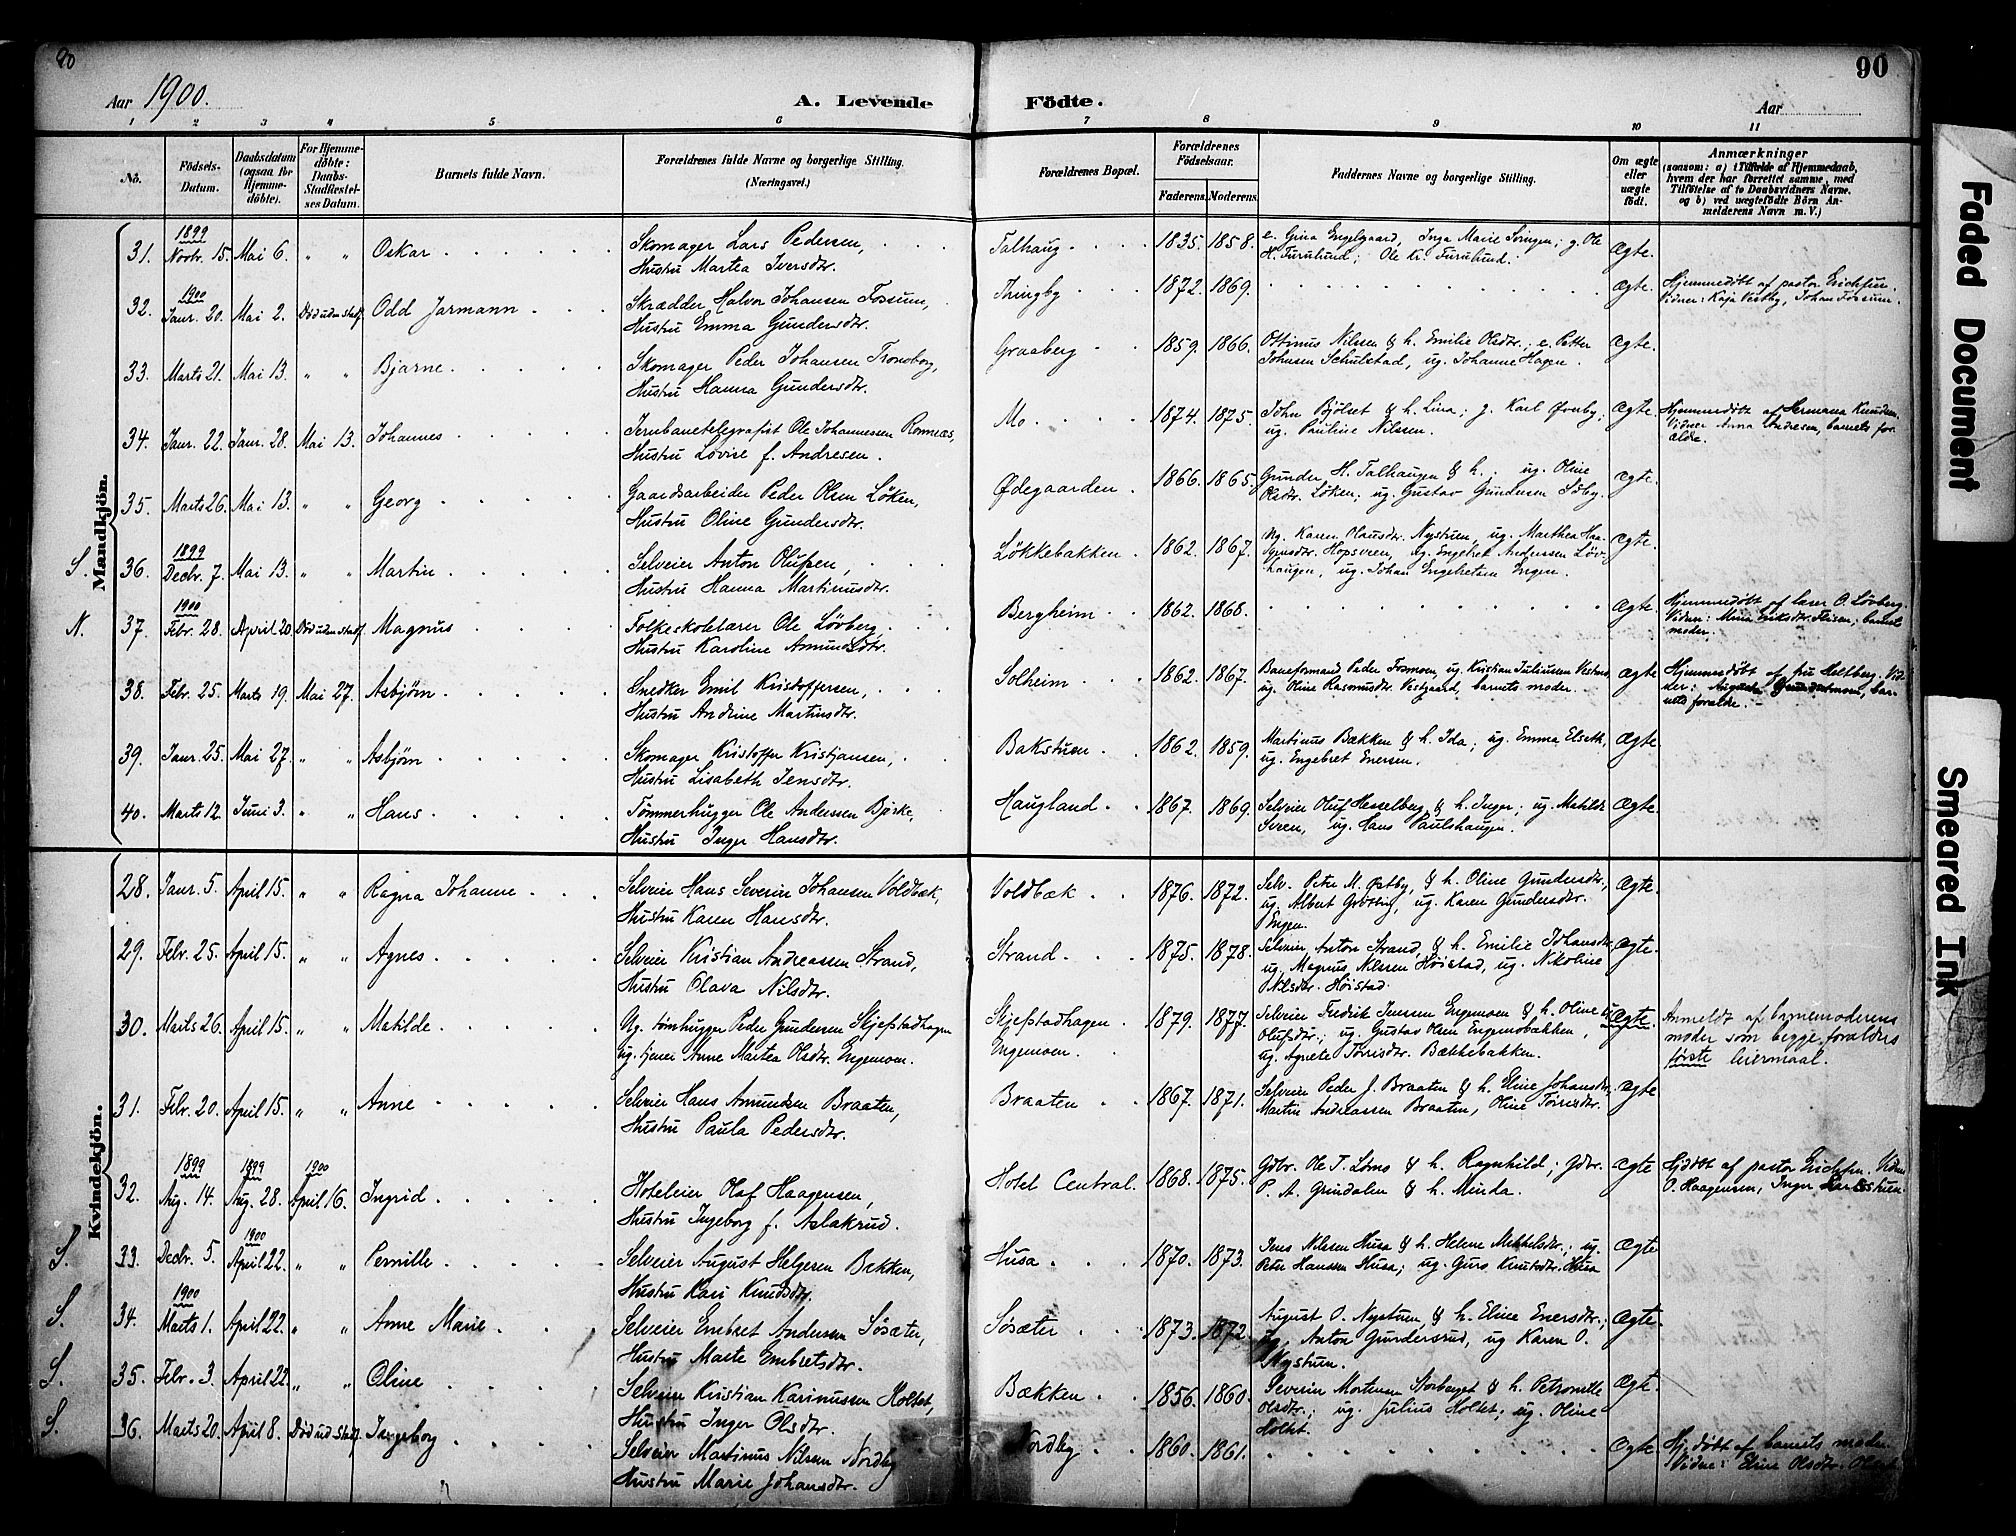 90
Aar 1900.
A. Levende Födte.
90
Aar
1 2 3 4 5 6 7 8 9 10 11
No.
Födsels-Datum.
Daabsdatum (ogsaa for Hjemme-döbte).
For Hjemme-döbte: Daabs-Stadfæstel-ses Datum.
Barnets fulde Navn.
Forældrenes fulde Navne og borgerlige Stilling. (Næringsvei.)
Forældrenes Bopæl.
Forældrenes Födselsaar.
Faderens. Moderens.
Faddernes Navne og borgerlige Stilling.
Om ægte eller uægte födt.
Anmærkninger
(saasom: a) i Tilfælde af Hjemmedaab, hvem der har forrettet samme, med Tilföielse af to Daabsvidners Navne, og b) ved uægtefödte Börn Anmelderens Navn m. V.)
Mandkjön.
31. 1899 Novbr. 15. Mai 6. " " Oskar Skomager Lars Pedersen, Talhaug 1835. 1858. e. Gina Engelgaard, Inga Marie Svingen; g. Ole Ægte.
Hustru Martea Iversdtr. H. Furulund; Ole Kr. Furulund.
32. 1900 Janr. 20. Mai 2. Död uden stadf. Odd Jarmann Skrædder Halvor Johansen Fossum, Thingby 1872. 1869. Ægte. Hjemmedöbt af pastor Erichsen.
Hustru Emma Gundersdtr. Vidner: Kaja Vestby, Johan Fossum.
33. Marts 21. Mai 13. " " Bjarne Skomager Peder Johansen Tronsborg, Graaberg 1859. 1866. Ottinus Nilsen & h. Emilie Olsdtr.; e. Petter Ægte.
Hustru Hanna Gundersdtr. Johnsen Schulstad, ug. Johanne Hagen.
34. Janr. 22. Janr. 28. Mai 13. Johannes Jernbanetelegrafist Ole Johannessen Romnæs, Mo 1874. 1875. John Bjölset & h. Lina; g. Karl Øvrby; Ægte. Hjemmedöbt af Hermana Knudsen.
Hustru Lovise f. Andresen. ug. Pauline Nilssen. Vidner Anna Andresen, barnets forælde.
35. Marts 26. Mai 13. " " Georg Gaardsarbeider Peder Olsen Löken, Ødegaarden 1866. 1865. Gunder H. Talhaugen & h.; ug. Oline Ægte.
Hustru Oline Gundersdtr. Olsdtr. Löken; ug. Gustav Gundersen Söby.
S. 36. 1899 Decbr. 7. Mai 13. " " Martin Selveier Anton Olufsen, Lökkebakken 1862. 1867. Ug. Karen Olausdtr. Nystuen, ug. Marthea Haagensdtr. Hopsveen, ug. Engebret Anderssen Lövhaugen, ug. Johan Engebretsen Engen. Ægte.
Hustru Hanna Martinusdtr.
N. 37. 1900 Febr. 28. April 20. Död uden stadf. Magnus Folkeskolelærer Ole Lövberg, Bergheim 1862. 1868. Ægte. Hjemmedöbt af lærer O. Lövberg.
Hustru Karoline Amundsdtr. Vidner: Mina Eriksdtr. Flisen; barnets moder.
38. Febr. 25. Marts 19. Mai 27. Asbjörn Snedker Emil Krisdoffersen, Solheim 1862. 1867. Baneformand Peder Fosmoen, ug. Kristian Juliussen Vestnes, Ægte Hjemmedöbt af fru Helberg. Vidner: barnets forælde.
Hustru Andrine Martinsdtr. ug. Oline Rasmusdtr. Vestgaard, barnets moder.
39. Janr. 25. Mai 27. " " Asbjörn Skomager Kristoffer Kristjansen, Bakstuen 1862. 1859. Martinus Bækken & h. Ida; ug. Emma Elseth, Ægte.
Hustru Lisabeth Jensdtr. ug. Engebret Enersen.
40. Marts 12. Juni 3. " " Hans Tömmerhugger Ole Andersen Björke, Haugland 1867. 1869. Selveier Oluf Hesselberg & h. Inger; ug. Matilde Ægte.
Hustru Inger Hansdtr. Sveen, ug. Hans Paulshaugen.
Kvindekjön.
28. Janr. 5. April 15. " " Ragna Johanne Selveier Hans Severin Johansen Voldbæk, Voldbæk 1876. 1872. Selv. Petr M. Østby, & h. Oline Gundersdtr., Ægte.
Hustru Karen Hansdtr. ug. Albert Grötting, ug. Karen Gundersdtr. Engen.
29. Febr. 25. April 15. " " Agnes Selveier Kristian Andreassen Strand, Strand 1875. 1878. Selveier Anton Strand, & h. Emilie Johansdtr, Ægte.
Hustru Olava Nilsdtr. ug. Magnus Nilssen Höistad, ug. Nikoline Nilsdtr. Höistad.
30. Marts 26. April 15. " " Matilde Ug. tömhugger Peder Gundersen Skjefstadhagen Skjefstadhagen 1879. 1877. Selveier Fredrik Jenssen Engemoen & h. Oline uægte. Anmeldt af barnemoderens
ug. tjener Anne Martea Olsdtr. Engemoen. Engemoen. Olufsdtr; ug. Gustav Olsen Engemobakken, ug. Agnete Törrisdtr. Bækkebakken. moder som begge forældres förste leiermaal.
31. Febr. 20. April 15. " " Anne Selveier Hans Amundsen Braaten, Braaten 1867. 1871. Selveier Peder J. Braaten & h. Eline Johansdtr. Ægte
Hustru Paula Pedersdtr. Martin Andreassen Braaten, Oline Törrisdtr.
32. 1899 Aug. 14. 1899 Aug. 28. 1900 April 16. Ingrid Hoteleier Olaf Haagensen, Hotel Central. 1868. 1875. Gdbr. Ole T. Lömo & h. Ragnhild; gdbr. Ægte Hjdöbt af pastor Erichsen. Vidn
Hustru Ingeborg f. Aslakrud. P. A. Grindalen & h. Minda. O. Haagensen, Inger
S. 33. Decbr. 5. 1900 April 22. " " Pernille Selveier August Helgesen Bakken, Husa 1870. 1873. Jens Nilssen Husa & h. Helene Mikkelsdtr.; ug. Ægte
Hustru Kari Knudsdtr. Peter Hanssen Husa; ug. Guro Knutsdtr. Husa
S. 34. 1900 Marts 1. April 22. " " Anne Marie Selveier Embret Andersen Sösæter, Sösæter 1873. 1872. August O. Nystuen, & h. Eline Enersdtr.; Ægte.
Hustru Marte Embretsdtr. ug. Anton Gundersrud, ug Karen O. Nystuen.
S. 35. Febr. 3. April 22. " " Oline Selveier Kristian Karinussen Holtet, Bækken 1856. 1860. Severin Mortensen Storberget & h. Petronille Ægte.
Hustru Inger Olsdtr. Olsdtr.; ug. Julius Holtet; ug. Oline Holtet.
S. 36. Marts 20. April 8. Död ud. stadf. Ingeborg Selveier Martinus Nilsen Nordby Nordby 1860. 1861. Ægte. Hj. döbt af barnets moder.
Hustru Marie Johansdtr. Vidner: Eline Olsdtr.
Faded Document
Smeared Ink